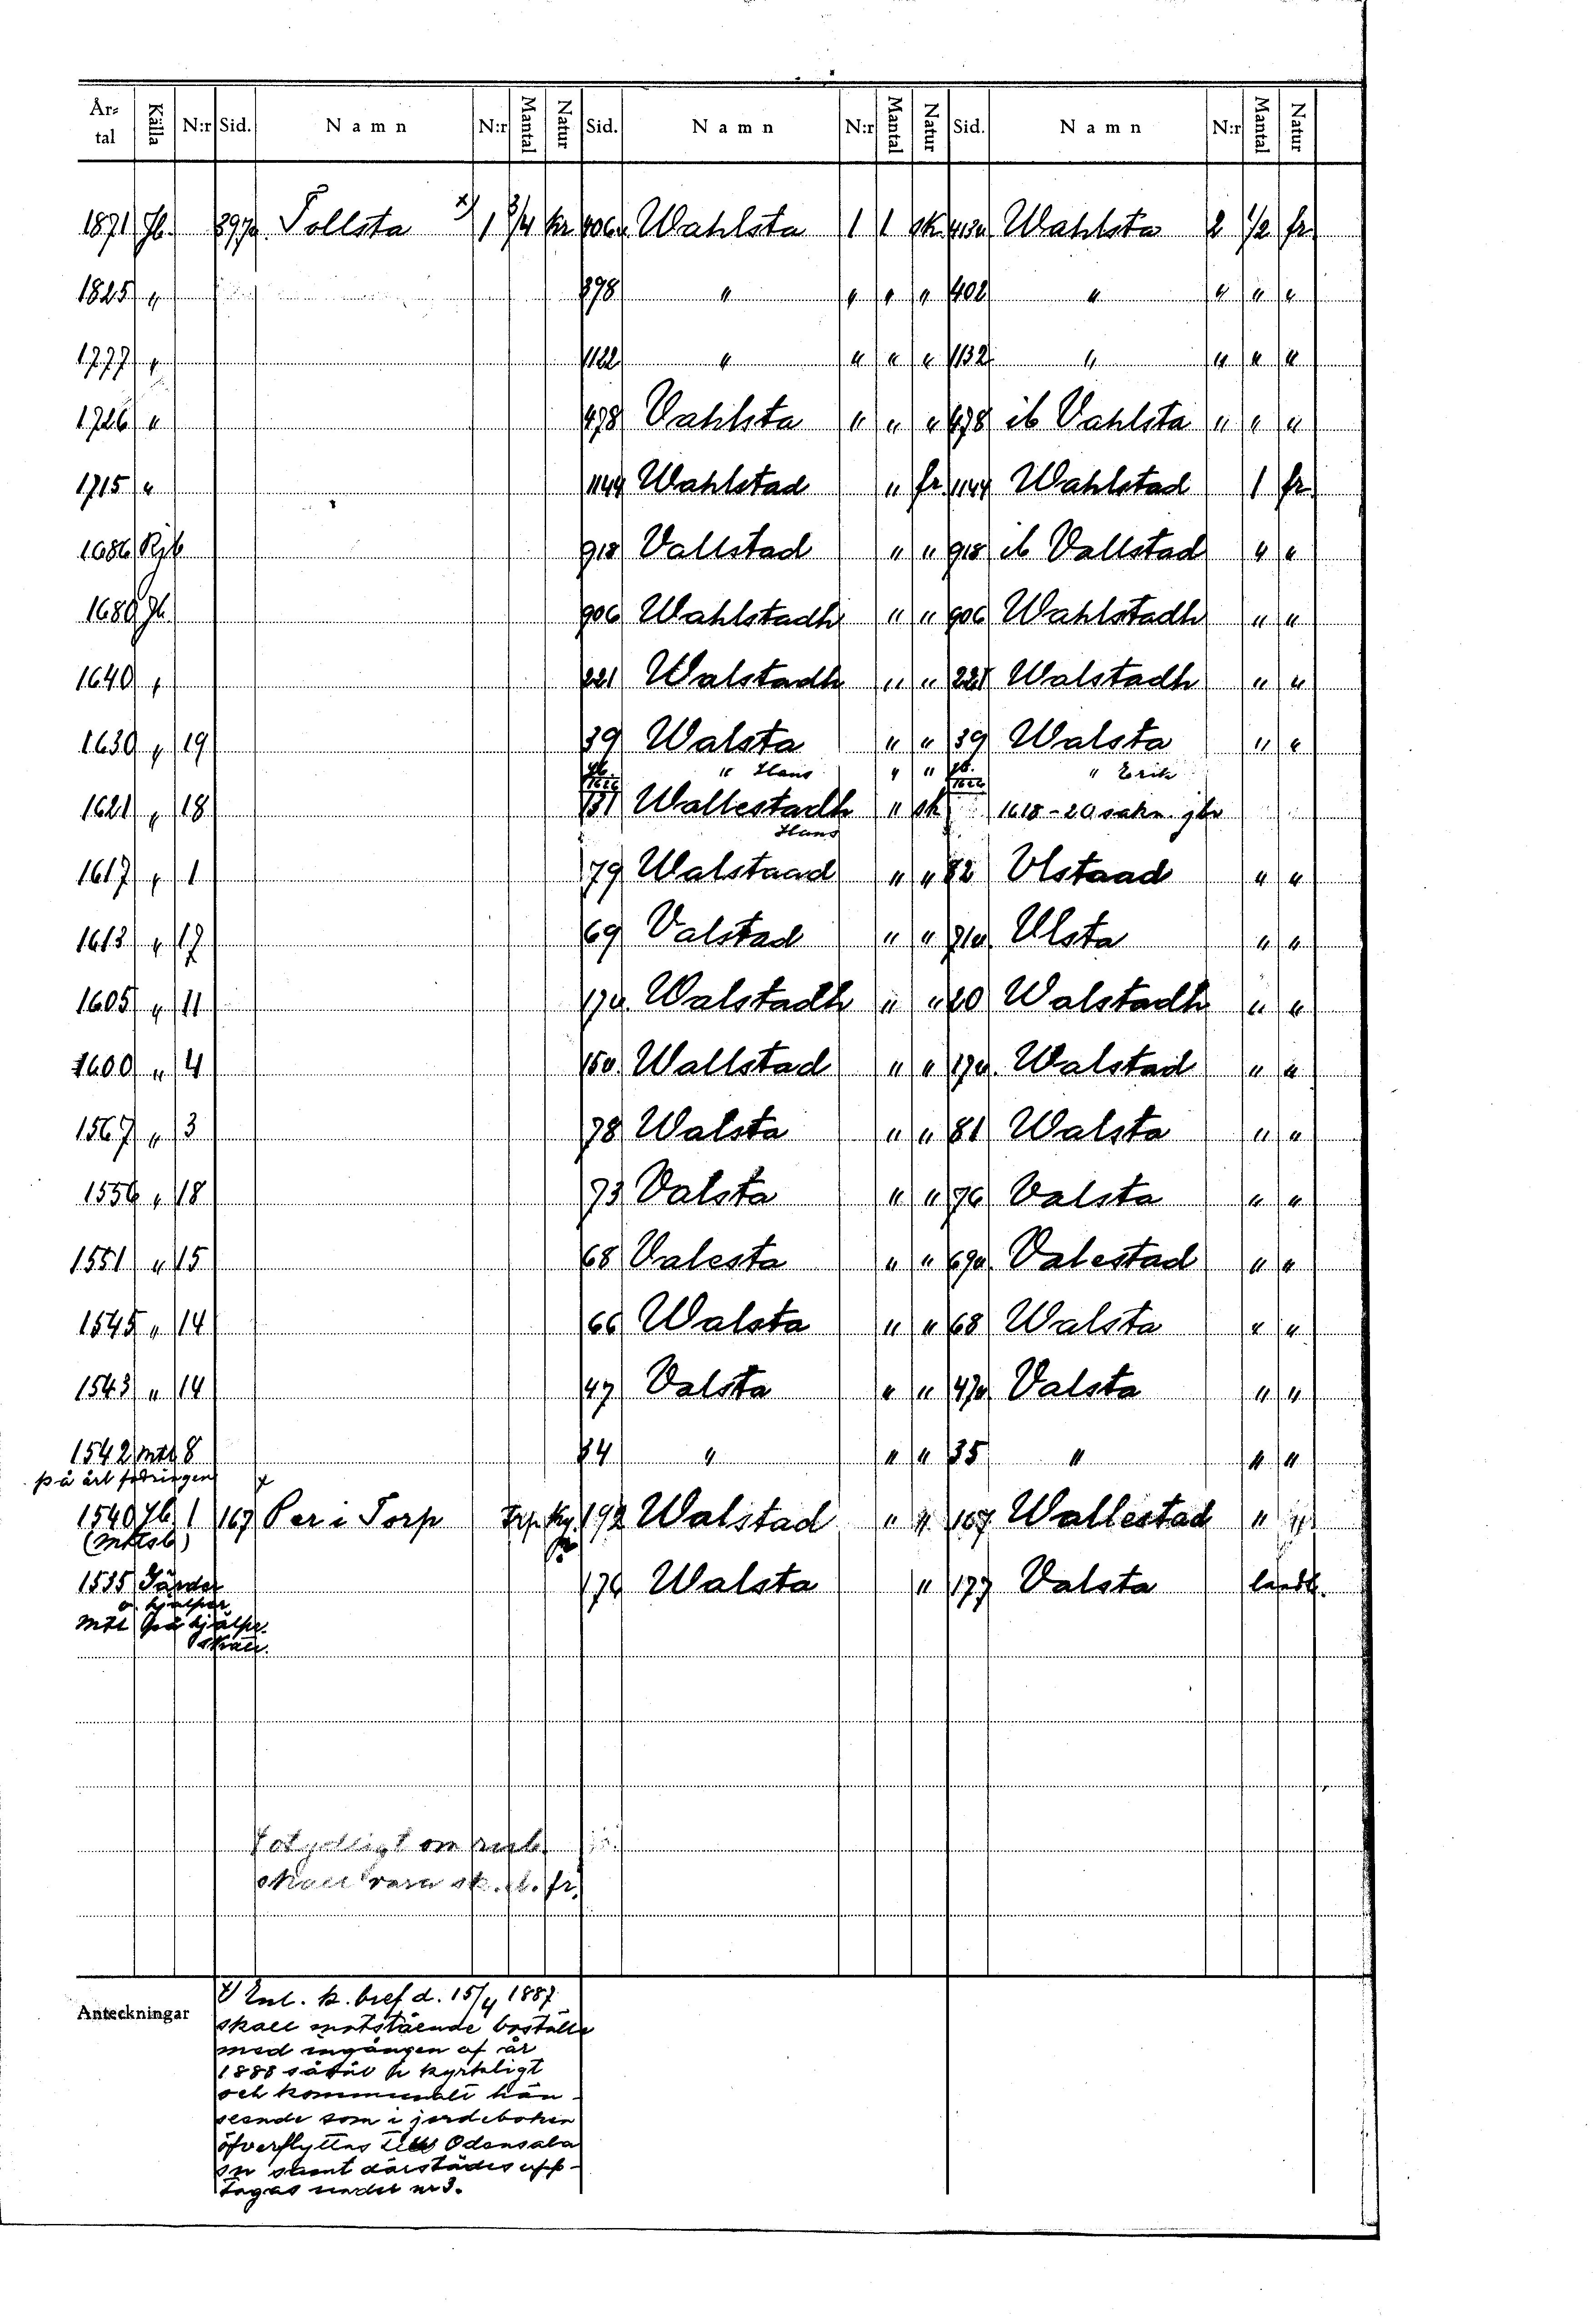 År- tal Källa N:r Sid. Namn N:r Mantal Natur Sid. Namn N:r Mantal Natur Sid. Namn N:r Mantal Natur
1871 Jb. 397v. Tollsta x) 1 3/4 kr 406v. Wahlsta 1 1 sk. 413v. Wahlsta 2 1/2 fr.
1825 " 398 " " " " 402 " " " "
1777 " 1122 " " " " 1132 " " " "
1726 " 478 Vahlsta " " " 478 ib Vahlsta " " "
1715 " 1144 Wahlstad " fr. 1144 Wahlstad 1 fr.
1686 Rjb 918 Vallstad " " 918 ib Vallstad " "
1680 Jb. 906 Wahlstadh " " 906 Wahlstadh " "
1640 " 221 Walstadh " " 221 Walstadh " "
1630 " 19 39 Walsta " " 39 Walsta " "
Jb. 1622 " Hans " " Jb. 1622 " Erik
1621 " 18 131 Wallestadh " sk 1618-20 sakn. jbr
Hans
1617 " 1 79 Walstaad " " 82 Vlstaad " "
1613 " 17 69 Valstad " " 71v. Ulsta " "
1605 " 11 17v. Walstadh " " 20 Walstadh " "
1600 " 4 15v. Wallstad " " 17v. Walstad " "
1567 " 3 78 Walsta " " 81 Walsta " "
1556 " 18 73 Valsta " " 76 Valsta " "
1551 " 15 68 Valesta " " 69v. Valestad " "
1545 " 14 66 Walsta " " 68 Walsta " "
1543 " 14 47 Valsta " " 47v. Valsta " "
1542 mtl 8 34 " " " 35 " " "
på årl fodringen x
1540 Jb. 1 167 Per i Torp Trp. Ky. 192 Walstad " " 167 Wallestad " "
(mtlsb)
1535 Gärder 176 Walsta " 177 Valsta landb.
o. hjälper
mtl på hjälpe.
skatt.
otydligt om rub.
skall vara sk. el. fr.
Anteckningar
x) Enl. k. bref d. 15/4 1887
skall motstående boställe
med ingången af år
1888 såväl i kyrkligt
och kommunalt hän-
seende som i jordeboken
öfverflyttas till Odensala
sn samt därstädes upp-
tagas under nr 3.